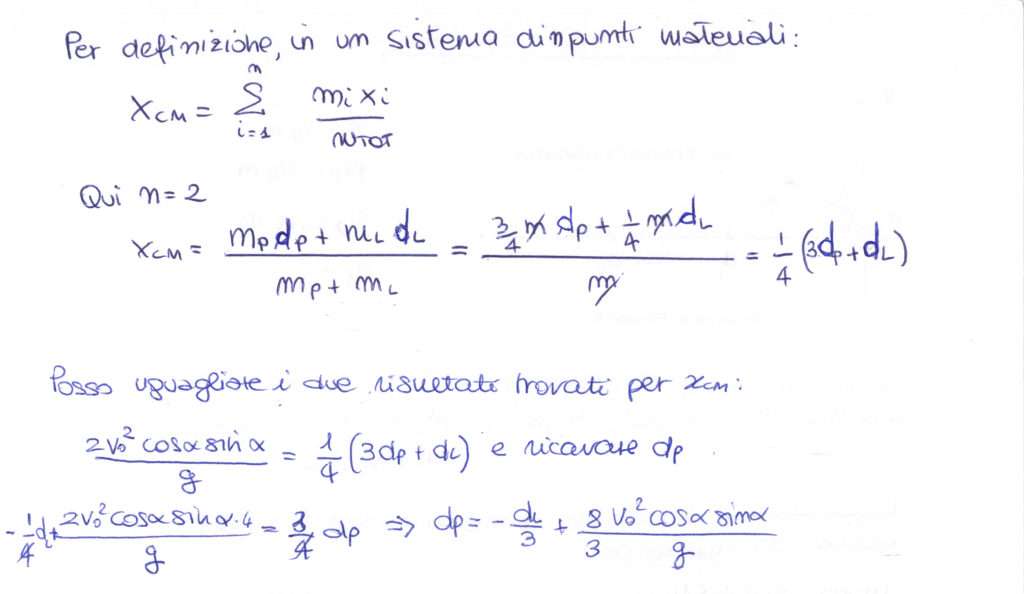 Per definizione, in un sistema di n punti materiali:
X_CM = Σ_{i=1}^{n} (m_i x_i)/(m_TOT)
Qui n=2
X_CM = (m_P d_P + m_L d_L)/(m_P + m_L) = (3/4 m d_P + 1/4 m d_L)/(m) = 1/4 (3d_P + d_L)
Posso uguagliare i due risultati trovati per x_CM:
(2V₀² cosα sinα)/g = 1/4 (3d_P + d_L) e ricavare d_P
-1/4 d_L + (2V₀² cosα sinα·4)/g = 3/4 d_P ⇒ d_P = - d_L/3 + 8/3 (V₀² cosα sinα)/g